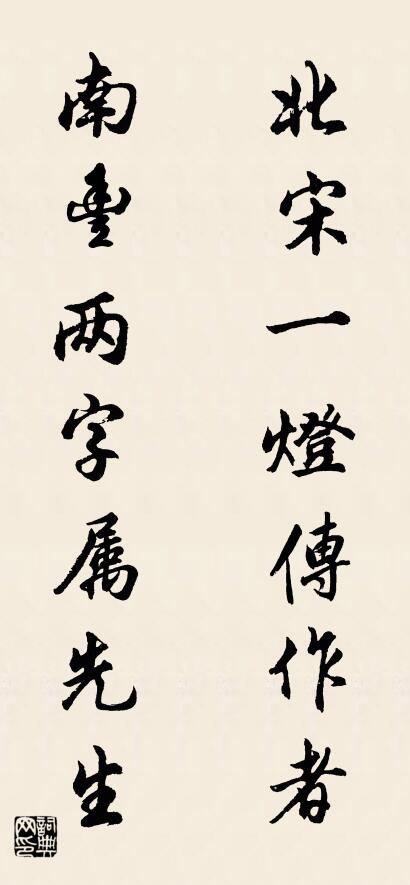 北宋一燈傳作者
南豐两字属先生
詞典网印